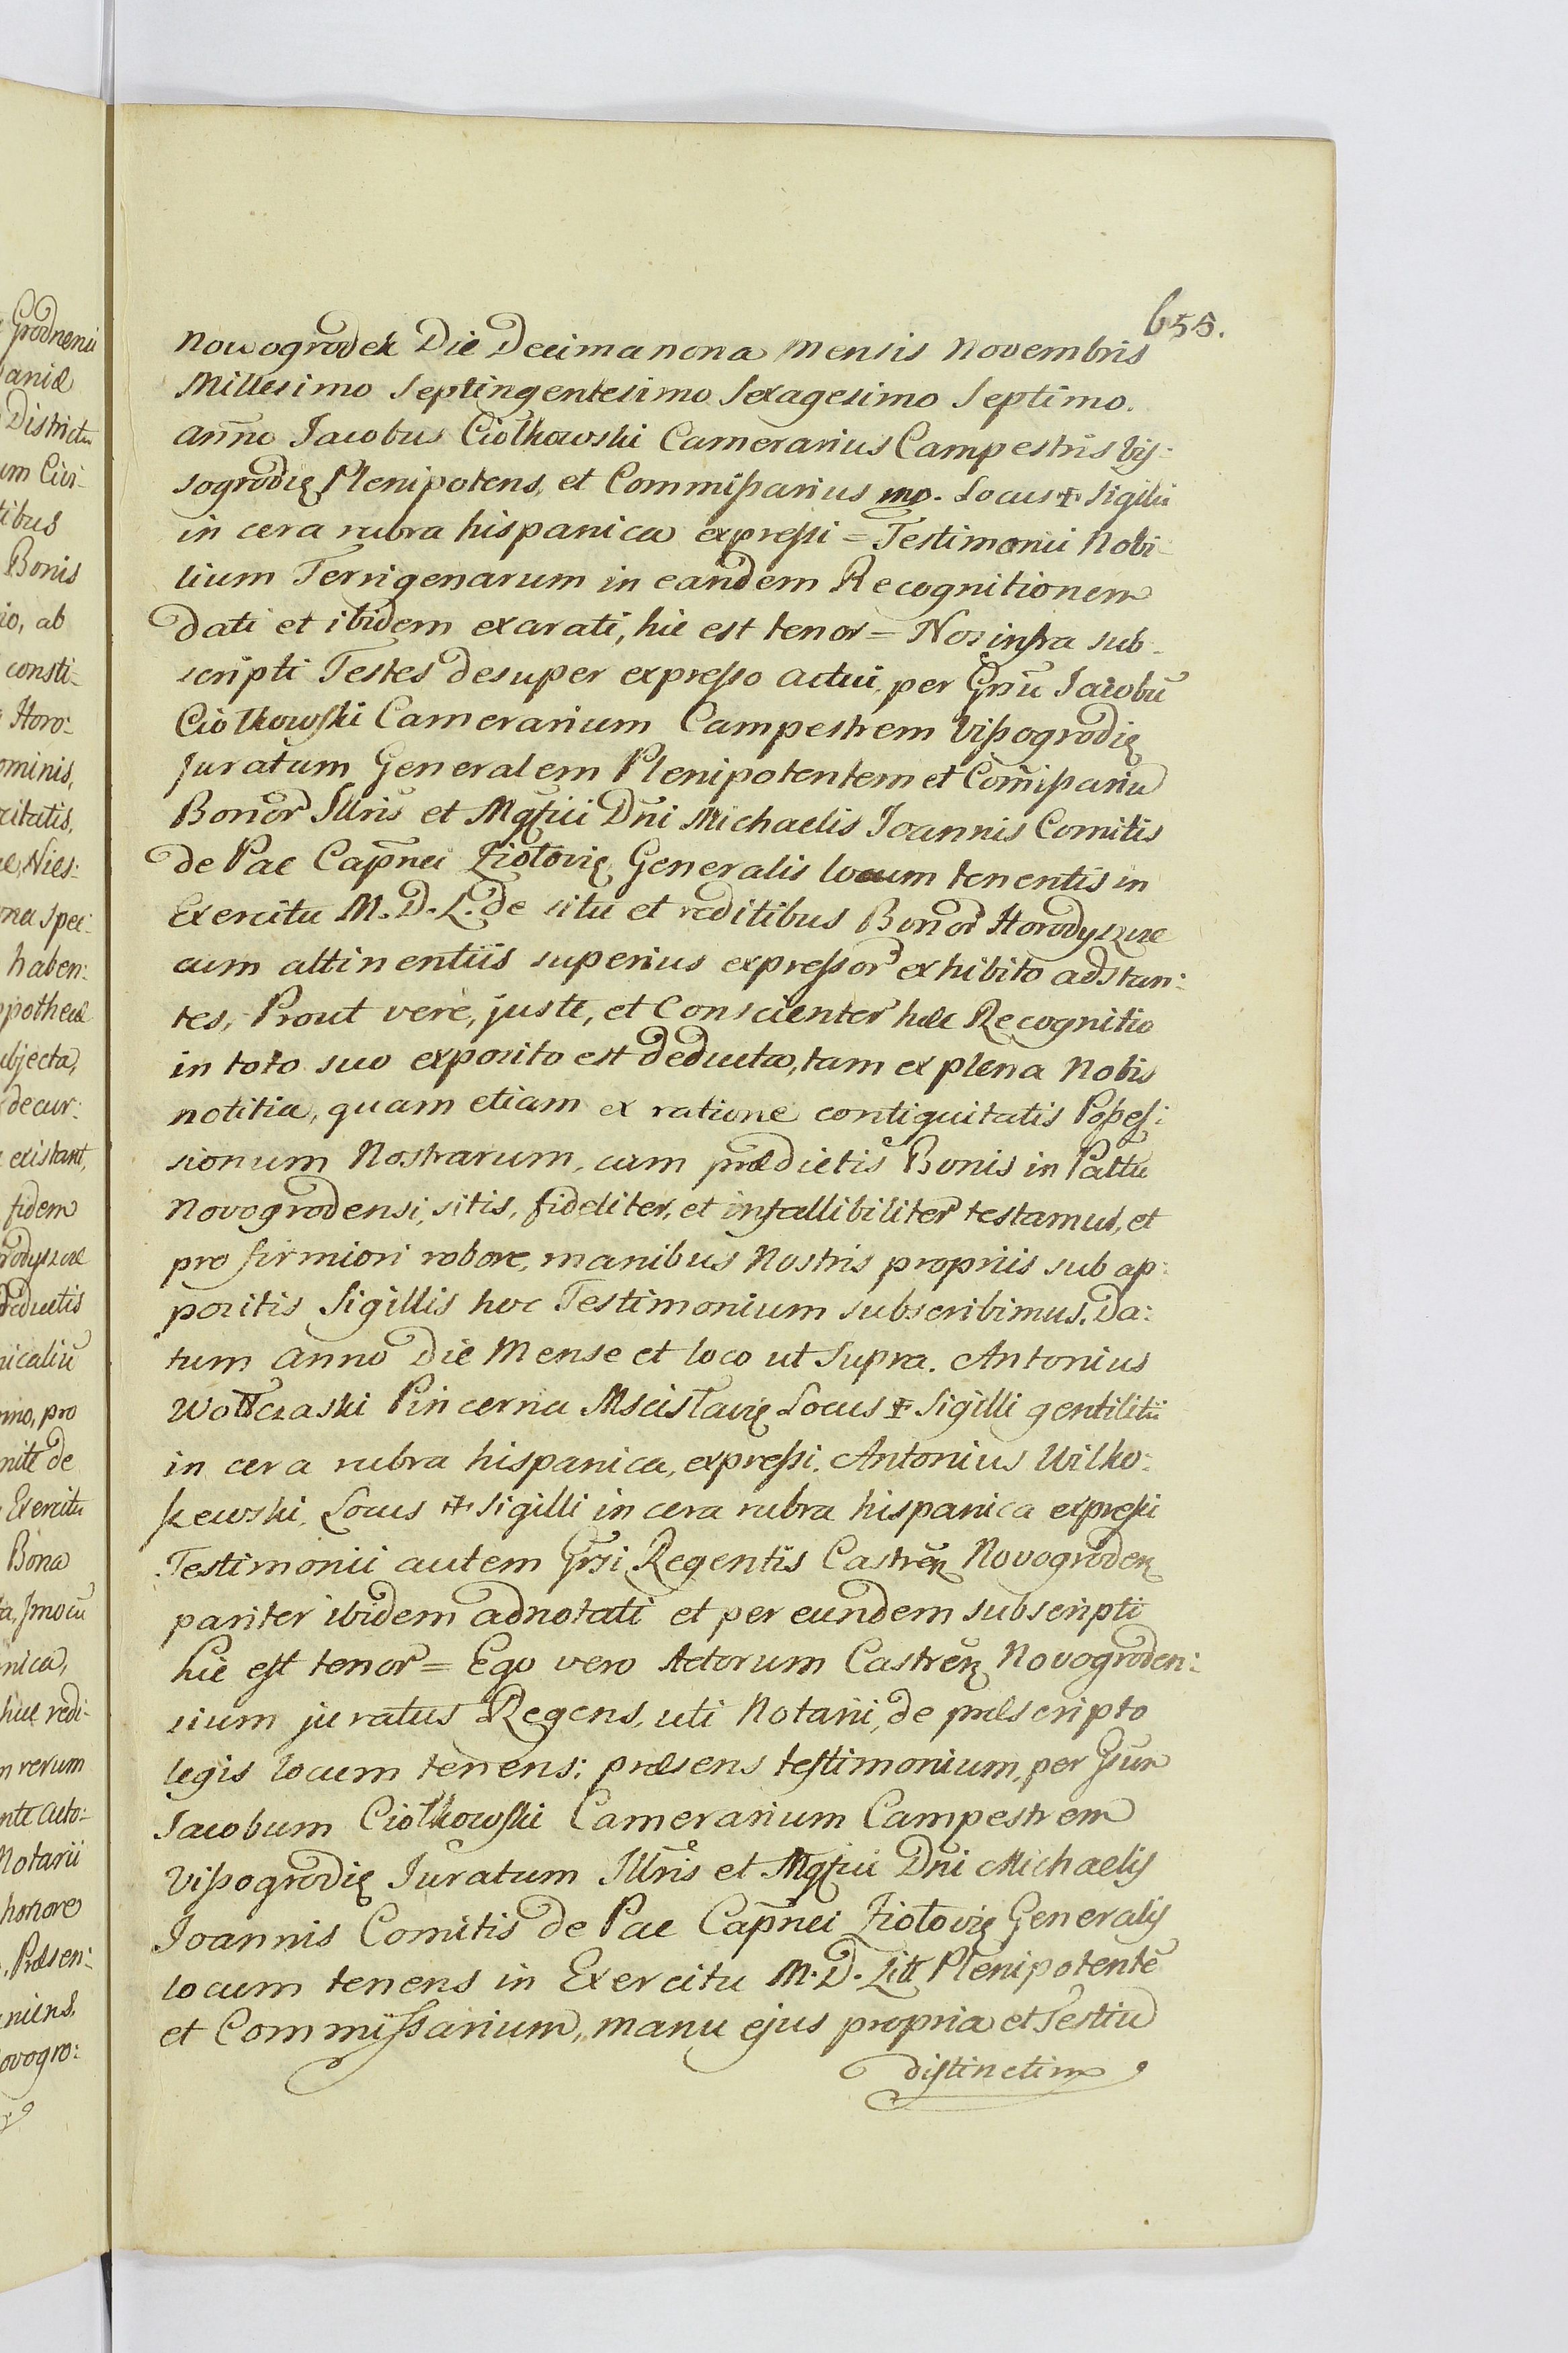 655.
Nowogrodek Die Decima nona Mensis Novembris
Millesimo Septingentesimo Sexagesimo Septimo.
anno Jacobus Ciołkowski Camerarius Campestris Vis:
sogrodię Plenipotens, et Commißarius mp. Locus ✠ Sigilli
in cera rubra hispanica expreßi = Testimonii Nobi:
lium Terrigenarum in eandem Recognitionem
dati et ibidem exarati, hic est tenor = Nos infra sub-
scripti Testes desuper expreßo actui, per Gnsū Jacobū
Ciołkowski Camerarium Campestrem Vißogrodię
Juratum Generalem Plenipotentem et Com̄ißariū
Bonor Illris et Mgfici Dn̄i Michaelis Joannis Comitis
de Pac Capn̄ei Ziołovię Generalis locum tenentis in
Exercitu M. D. L. de situ et reditibus Bonor Horodyszcze
cum attinentiis superius expreßor exhibito adstan:
tes, Prout vere, juste, et Conscienter hæc Recognitio
in toto suo exposito est deducta, tam ex plena Nobis
notitia, quam etiam ex ratione contiguitatis Poßeß:
sionum Nostrarum, cum prædictis Bonis in Pałtu
Novogrodensi, sitis, fideliter, et infallibiliter testamus, et
pro firmiori robore, manibus Nostris propriis sub ap:
positis Sigillis hoc Testimonium subscribimus. Da:
tum Anno Die Mense et loco ut Supra. Antonius
Pincerna Mscisłavię Locus ✠ Sigilli gentilitii
in cera rubra hispanica, expreßi. Antonius Wilko:
Locus ✠ Sigilli in cera rubra hispanica expreßi
Testimonii autem Gnsi Regentis Castren Novogroden
pariter ibidem adnotati et per eundem subscripti
hic est tenor = Ego vero Actorum Castren Novogroden:
sium juratus Regens, uti Notarii, de præscripto
legis locum tenens: præsens testimonium, per Gnsum
Jacobum Ciołkowski Camerarium Campestrem
Vißogrodię Juratum Illris et Mgfici Dn̄i Michaelis
Joannis Comitis de Pac Capn̄ei Ziołovię Generalis
locum tenens in Exercitu M. D. Litt Plenipotentē
et Commißarium, manu ejus propria et Testiū
distinctim
Grodnensi
Districtu
um Civi-
tibus
Bonis
io, ab
consti-
Horo:
ominis,
citatis,
Nies:
haben:
ubjecta,
decur:
existant,
fidem
nicaliū
nno, pro
nite de
Exercitu
Bona
nica,
redi-
rerum
Notarii
honore
Præsen:
niens,
ovogro: